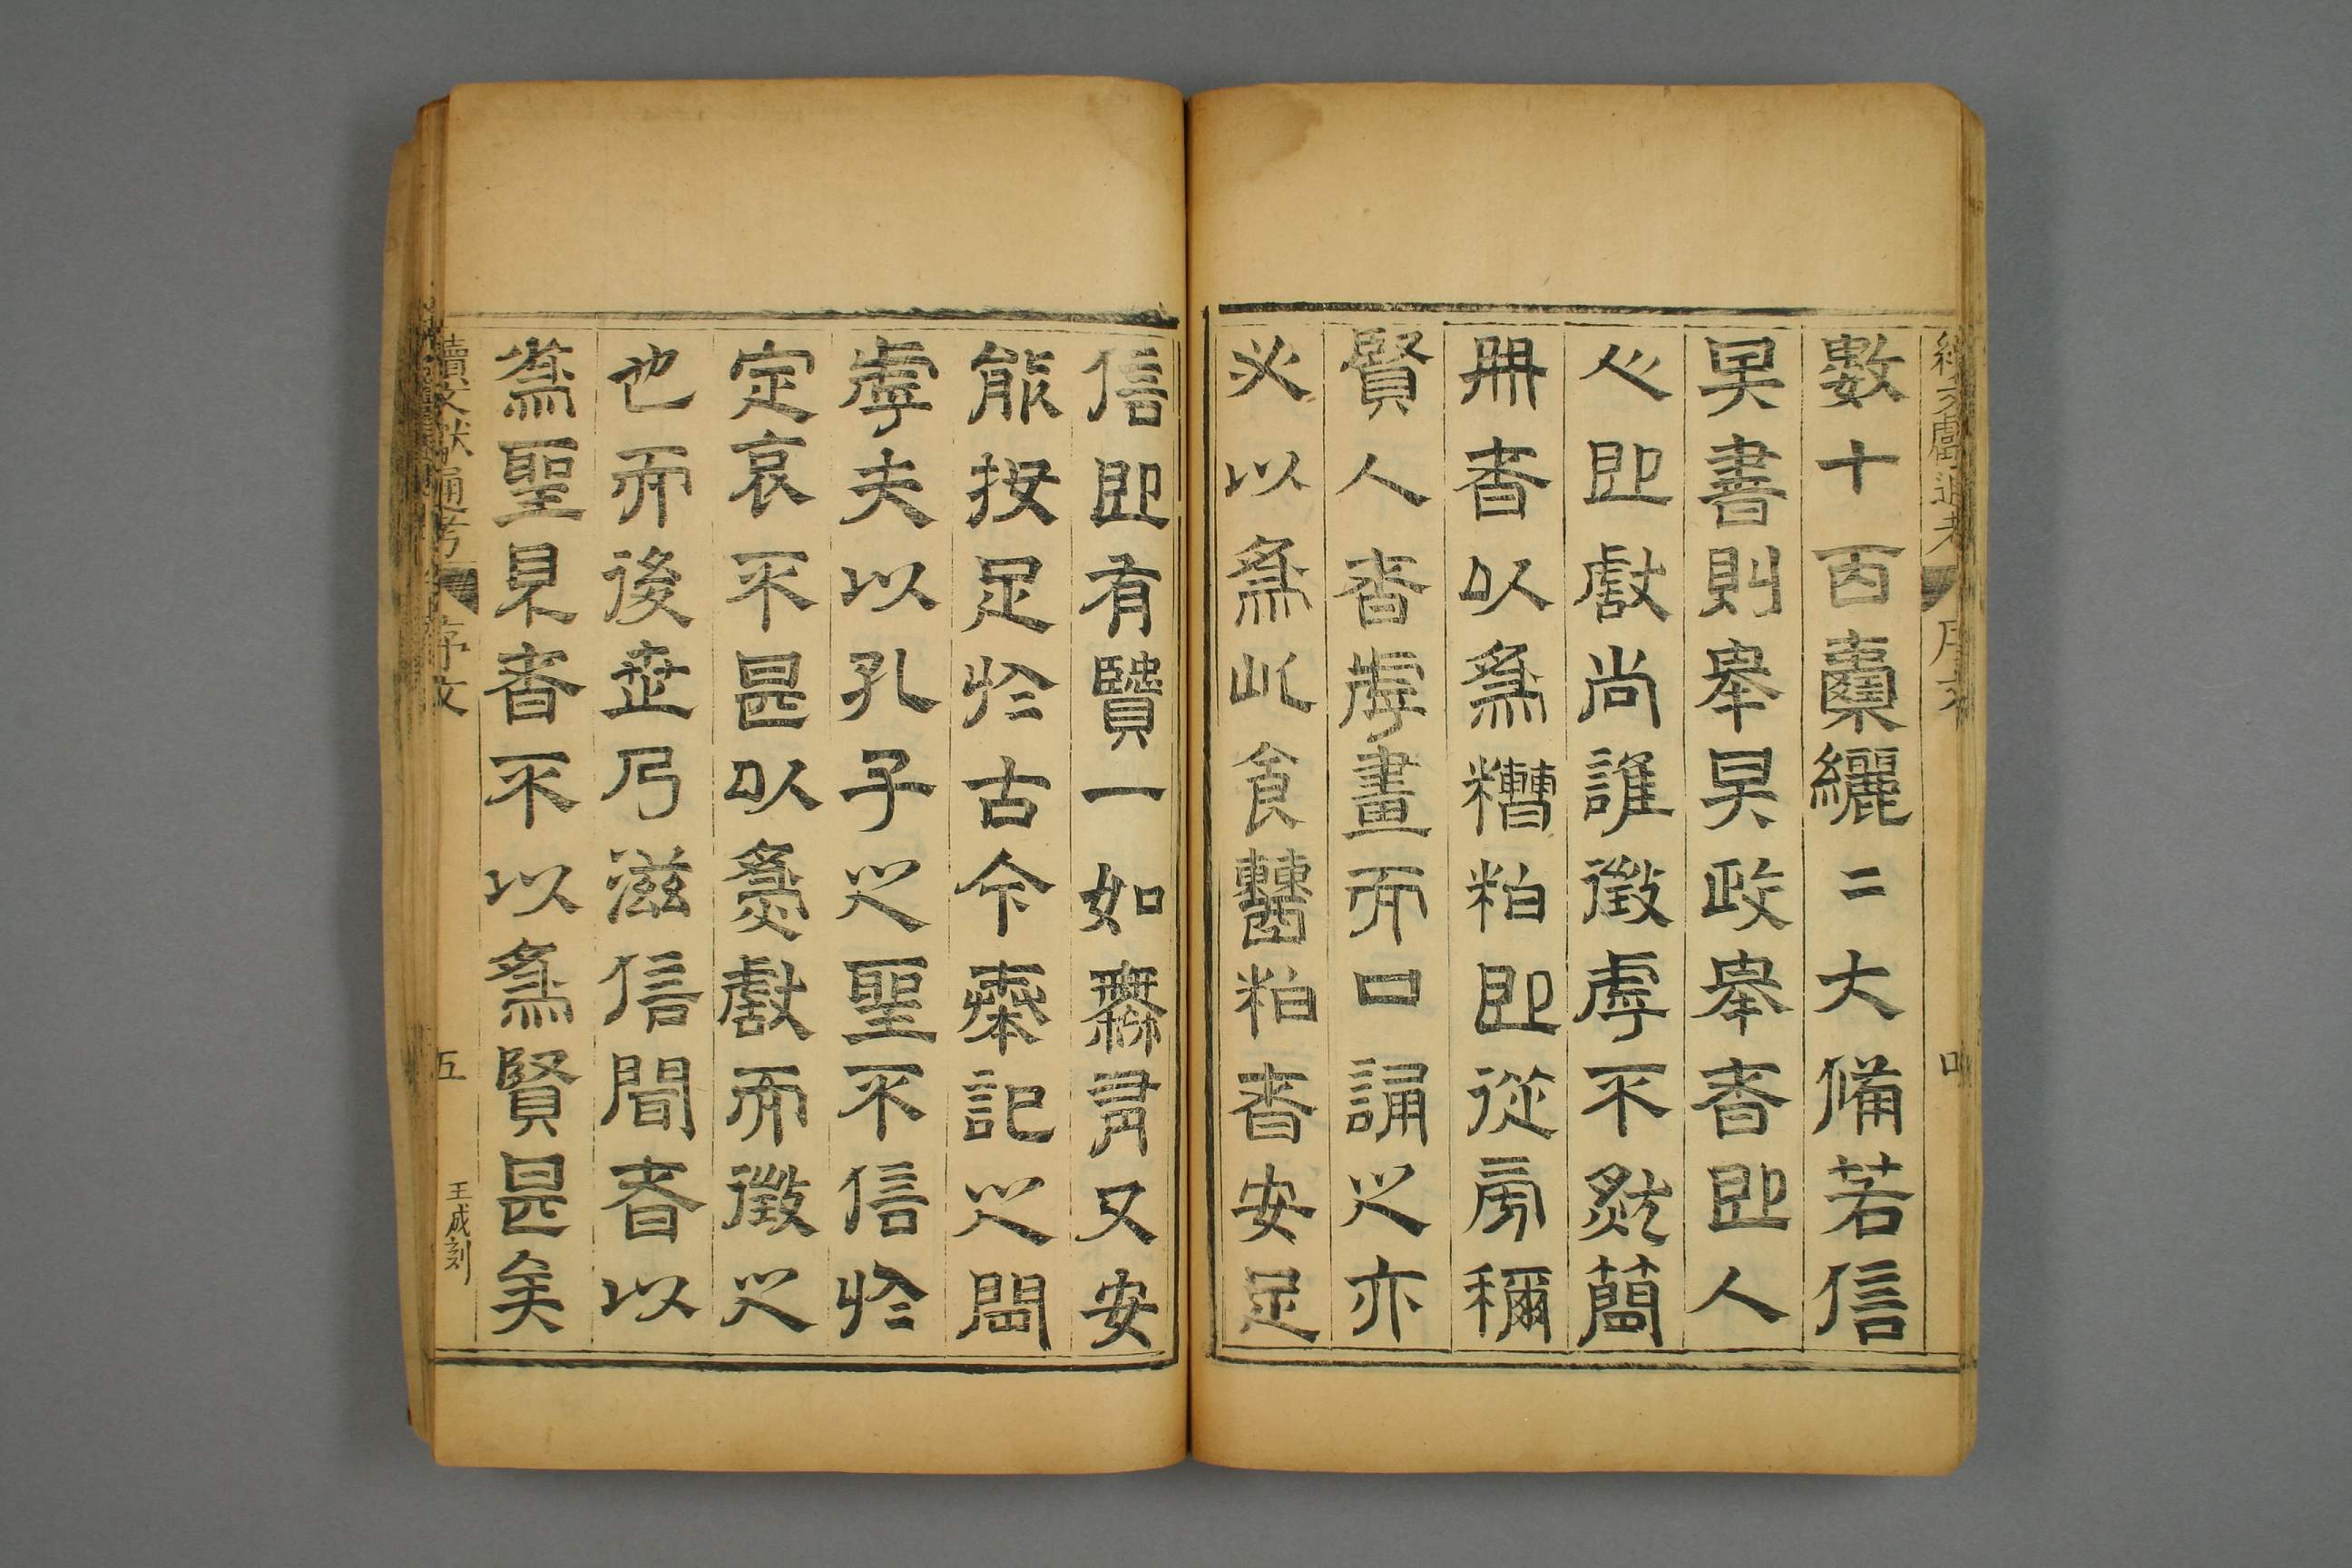 續文獻通考 序文 四
數十百櫜纚二大備若信
其書則舉其政舉者即人
心即獻尚誰徵虖不然簡
冊者以爲糟粕即從而稱
賢人者虖畫而口誦之亦
必以爲此食醫粕者安足
信即有賢一如
又安
能按足於古今
記之間
虖夫以孔子之聖不信於
定哀不甚以爲獻而徵之
也而後世乃滋信間者以
爲聖見者不以爲賢甚矣
續文獻通考 序文 五 王成刻